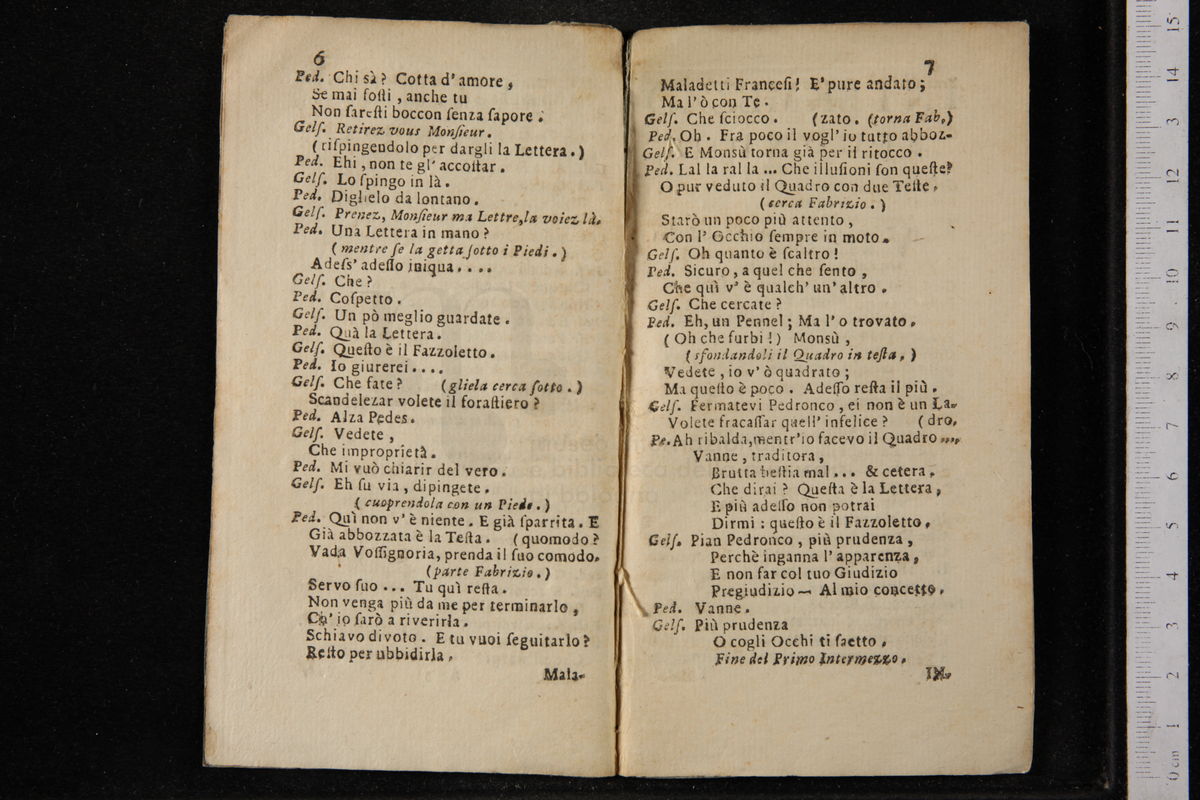 6
Ped. Chi sà? Cotta d'amore,
Se mai foſti, anche tu
Non fareſti boccon ſenza ſapore.
Gelſ. Retirez vous Monſieur.
(riſpingendolo per dargli la Lettera.)
Ped. Ehi, non te gl' accoſtar.
Gelſ. Lo ſpingo in là.
Ped. Diglielo da lontano.
Gelſ. Prenez, Monſieur ma Lettre, la voiez là.
Ped. Una Lettera in mano?
(mentre ſe la getta ſotto i Piedi.)
Adeſs' adeſſo iniqua....
Gelſ. Che?
Ped. Coſpetto.
Gelſ. Un pò meglio guardate.
Ped. Quà la Lettera.
Gelſ. Queſto è il Fazzoletto.
Ped. Io giurerei....
Gelſ. Che fate? (gliela cerca ſotto.)
Scandelezar volete il foraſtiero?
Ped. Alza Pedes.
Gelſ. Vedete,
Che improprietà.
Ped. Mi vuò chiarir del vero.
Gelſ. Eh ſu via, dipingete.
(cuoprendola con un Piede.)
Ped. Quì non v' è niente. E già ſparrita. E
Già abbozzata è la Teſta. (quomodo?
Vada Voſſignoria, prenda il ſuo comodo.
(parte Fabrizio.)
Servo ſuo... Tu quì reſta.
Non venga più da me per terminarlo,
Ch' io ſarò a riverirla.
Schiavo divoto. E tu vuoi ſeguitarlo?
Reſto per ubbidirla.
Mala-
7
Maladetti Franceſi! E' pure andato;
Ma l' ò con Te.
Gelſ. Che ſciocco. (zato. (torna Fab.)
Ped. Oh. Fra poco il vogl' io tutto abboz-
Gelſ. E Monsù torna già per il ritocco.
Ped. Lal la ral la... Che illuſioni ſon queſte?
O pur veduto il Quadro con due Teſte.
(cerca Fabrizio.)
Starò un poco più attento,
Con l' Occhio ſempre in moto.
Gelſ. Oh quanto è ſcaltro!
Ped. Sicuro, a quel che ſento,
Che quì v' è qualch' un' altro.
Gelſ. Che cercate?
Ped. Eh, un Pennel; Ma l' o trovato.
(Oh che furbi!) Monsù,
(sfondandoli il Quadro in teſta.)
Vedete, io v' ò quadrato;
Ma queſto è poco. Adeſſo reſta il più.
Gelſ. Fermatevi Pedronco, ei non è un La-
Volete fracaſſar quell' infelice? (dro.
Pe. Ah ribalda, mentr'io facevo il Quadro....
Vanne, traditora,
Brutta beſtia mal... & cetera.
Che dirai? Queſta è la Lettera,
E più adeſſo non potrai
Dirmi: queſto è il Fazzoletto.
Gelſ. Pian Pedronco, più prudenza,
Perchè inganna l' apparenza,
E non far col tuo Giudizio
Pregiudizio — Al mio concetto.
Ped. Vanne.
Gelſ. Più prudenza
O cogli Occhi ti ſaetto.
Fine del Primo Intermezzo.